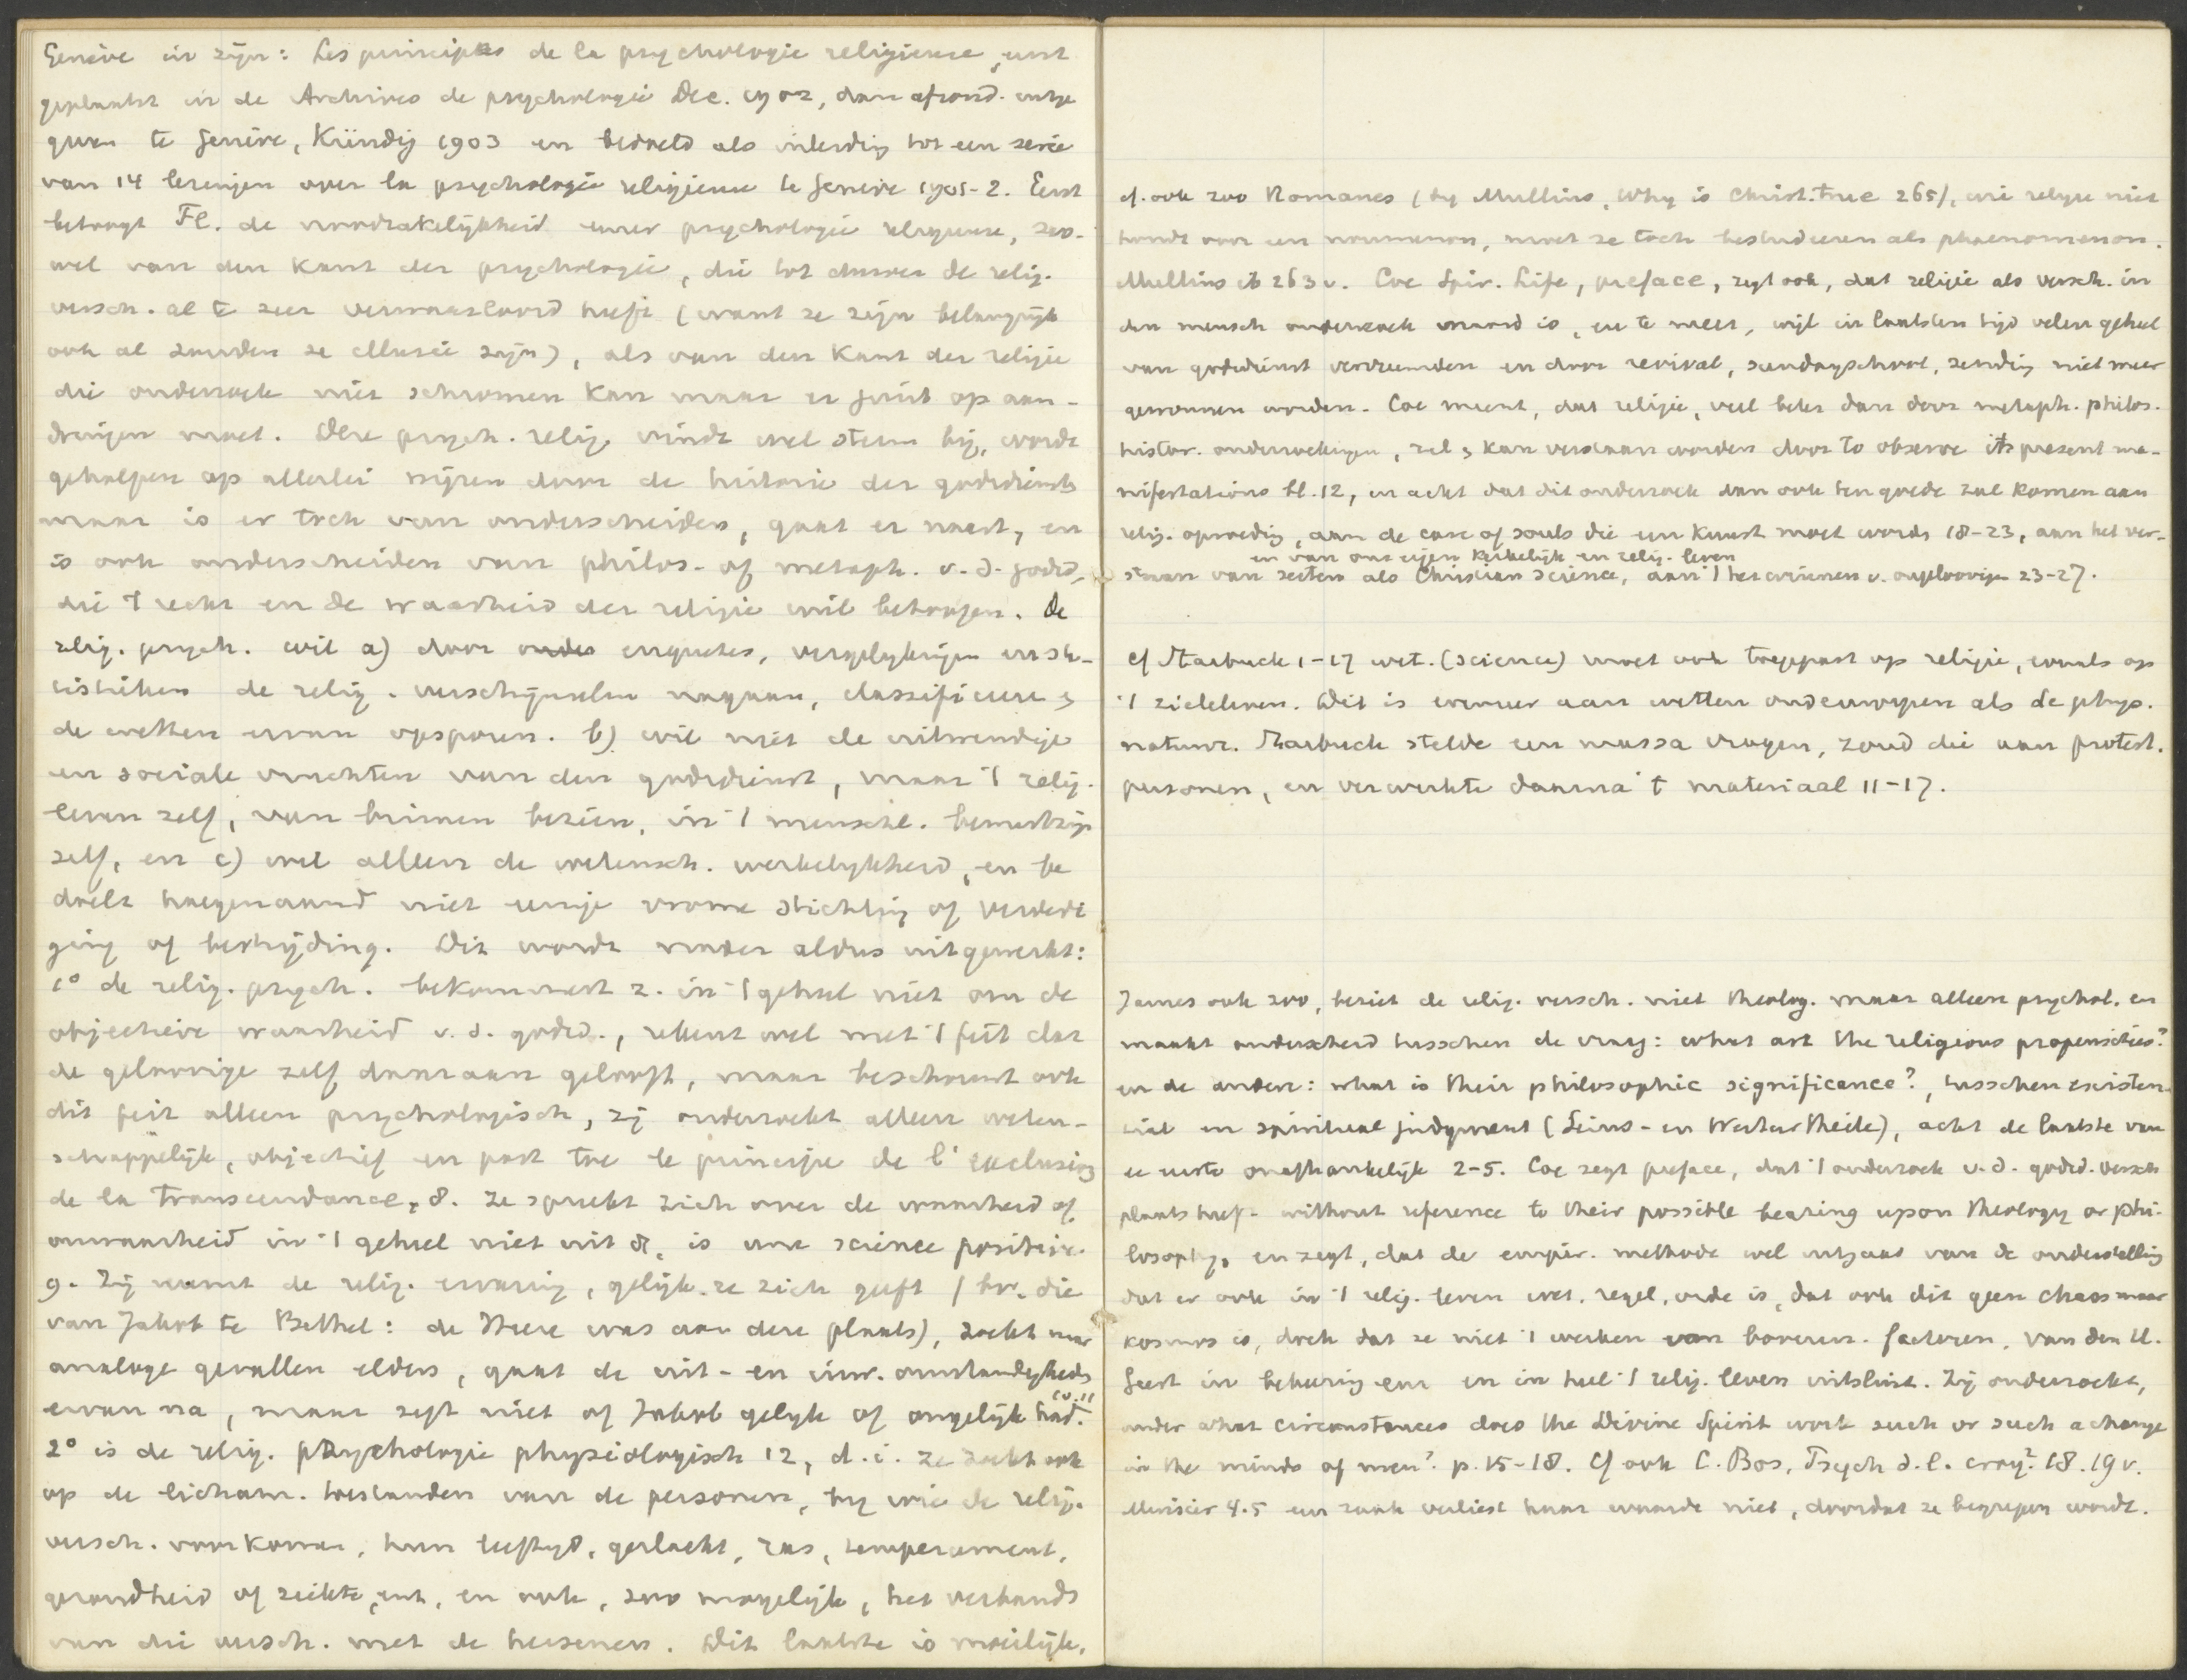 Genève in zijn: Les principes de la psychologie religieuse, eerst
geplaatst in de Archives de psychologie Dec. 1902, dan afzond. uitge
geven te Genève, Kündig 1903 en bedoeld als inleiding tot een serie
van 14 lezingen over la psychologie religieuse te Genève 1901-2. Eerst
betoogt Fl. de noodzakelijkheid eener psychologie religieuse, zoo-
wel van den kant der psychologie, die tot dusver de relig.
versch. al te zeer verwaarloosd heeft (want ze zijn belangrijk
ook al zouden ze illusie zijn), als van den kant der religie
die onderzoek niet schromen kan maar er juist op aan-
dringen moet. Deze psych. relig. vindt wel steun bij, wordt
geholpen op allerlei wijzen door de historie der godsdiensten
maar is er toch van onderscheiden, gaat er naast, en
is ook onderscheiden van philos. of metaph. v. d. godsd.,
die 't recht en de waarheid der religie wil betoogen. De
relig. psych. wil a) door onder enquetes, vergelijkingen en sta-
tistieken de relig. verschijnselen nagaan, classificeeren &
de wetten ervan opsporen. b) wil niet de uitwendige
en sociale vruchten van den godsdienst, maar 't relig.
leven zelf, van binnen bezien, in 't menschl. bewustzijn
zelf, en c) wil alleen de wetensch. werkelijkheid, en be
doelt hoegenaamd niet eenige vrome stichting of verdedi
ging of bestrijding. Dit wordt nader aldus uitgewerkt:
1° de relig. psych. bekommert z. in 't geheel niet om de
objectieve waarheid v. d. godsd., rekent wel met 't feit dat
de geloovige zelf daaraan gelooft, maar beschouwt ook
dit feit alleen psychologisch, zij onderzoekt alleen weten-
schappelijk, objectief en past toe le principe de l'exclusion
de la transcendance, 8. Ze spreekt zich over de waarheid of
onwaarheid in 't geheel niet uit 8, is une science positive
9. Zij neemt de relig. ervaring, gelijk ze zich geeft (bv. die
van Jakob te Bethel: de Heere was aan deze plaats), zoekt naar
analoge gevallen elders, gaat de uit- en inw. omstandigheden
ervan na, maar zegt niet of Jakob gelijk of ongelijk had. 10.11
2° is de relig. psychologie physiologisch 12, d.i. ze zoekt ook
op de licham. toestanden van de personen, bij wie de relig.
versch. voorkomen, hun leeftijd, geslacht, ras, temperament,
gezondheid of ziekte, enz, en ook, zoo mogelijk, het verband
van die versch. met de hersenen. Dit laatste is moeilijk,
cf. ook zoo Romanes (bij Mullins, Why is Christ. true 265), wie religie niet
houdt voor een noumenon, moet ze toch bestudeeren als phaenomenon.
Mullins ib 263 v. Coe Spir. Life, preface, zegt ook, dat religie als versch. in
den mensch onderzoek waard is, en te meer, wijl in laatsten tijd velen geheel
van godsdienst vervreemden en door revival, sundayschool, zending niet meer
gewonnen worden. Coe meent, dat religie, veel beter dan door metaph. philos.
histor. onderzoekingen, zal & kan verstaan worden door to observe its present ma-
nifestations bl. 12, en acht dat dit onderzoek dan ook ten goede zal komen aan
relig. opvoeding, aan de care of souls die een kunst moet worden 18-23, aan het ver-
en van ons eigen kerkelijk en relig. leven
staan van secten als Christian Science, aan 't herwinnen v. ongeloovigen 23-27.
cf Starbuck 1-17 wet. (science) moet ook toegepast op religie, evenals op
't zieleleven. Dit is evenzeer aan wetten onderworpen als de phys.
natuur. Starbuck stelde een massa vragen, zond die aan protest.
personen, en verwerkte daarna 't materiaal 11-17.
James ook zoo, beziet de relig. versch. niet theolog. maar alleen psychol. en
maakt onderscheid tusschen de vraag: what are the religious propensities?
en de andere: what is their philosophic significance?, tusschen existen-
tial en spiritual judgment (Seins- en Werturtheile), acht de laatste van
de eerste onafhankelijk 2-5. Coe zegt preface, dat 't onderzoek v. d. godsd. versch
plaats heeft without reference to their possible bearing upon theology or phi-
losophy, en zegt, dat de empir. methode wel uitgaat van de onderstelling
dat er ook in 't relig. leven wet, regel, orde is, dat ook dit geen chaos maar
kosmos is, doch dat ze niet 't werken van bovenn. factoren, van den H.
Geest in bekeering enz en in heel 't relig. leven uitsluit. Zij onderzoekt,
under what circumstances does the Divine Spirit work such or such a change
in the minds of men? p. 15-18. Cf ook C. Bos, Psych d. l. croy? 18.19 v.
Murisier 4.5 een zaak verliest haar waarde niet, doordat ze begrepen wordt.